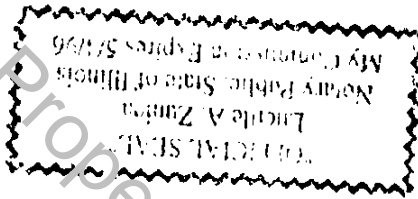 "OFFICIAL SEAL"
Lucille A. Zunica
Notary Public, State of Illinois
My Commission Expires 5/1/96
Prope